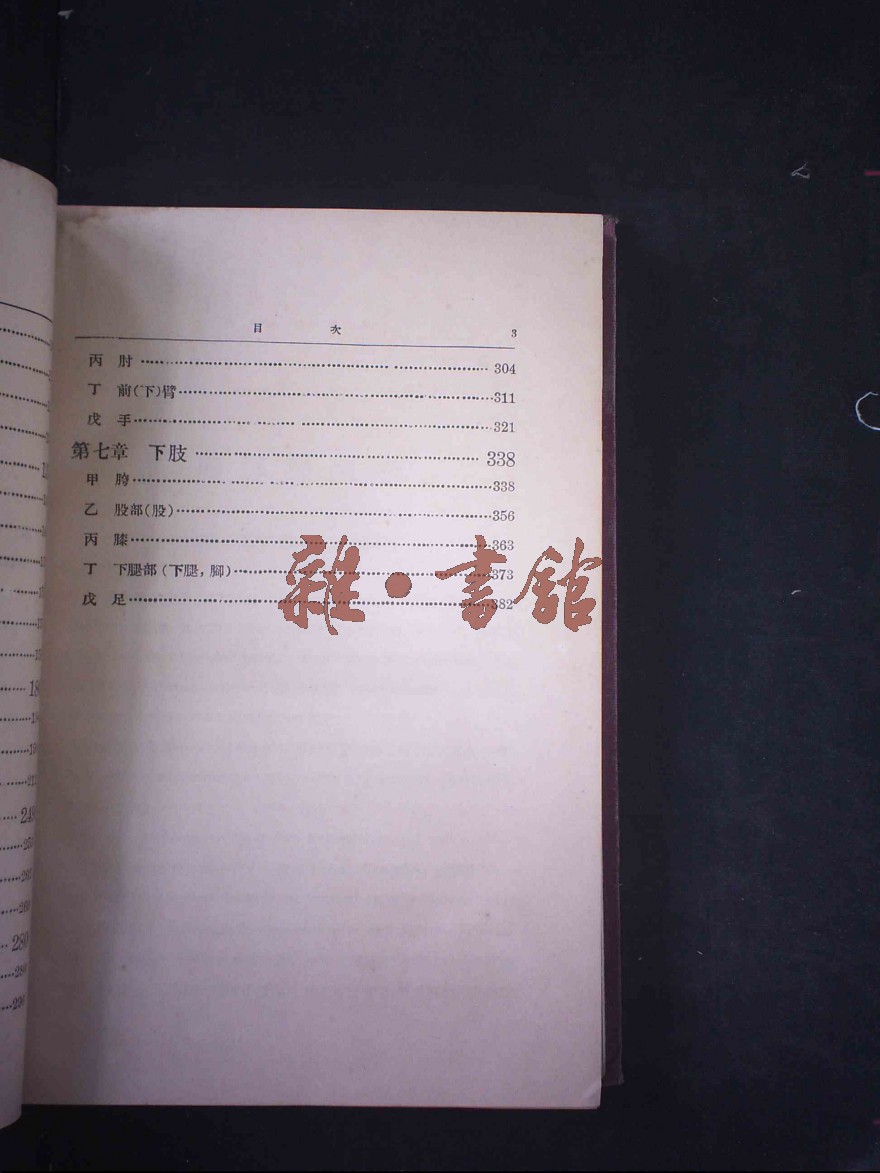 目 次 3
丙 肘 304
丁 前(下)臂 311
戊 手 321
第七章 下肢 338
甲 胯 338
乙 股部(股) 356
丙 膝 363
丁 下腿部(下腿，脚) 373
戊 足 382
雜·書館
248
280